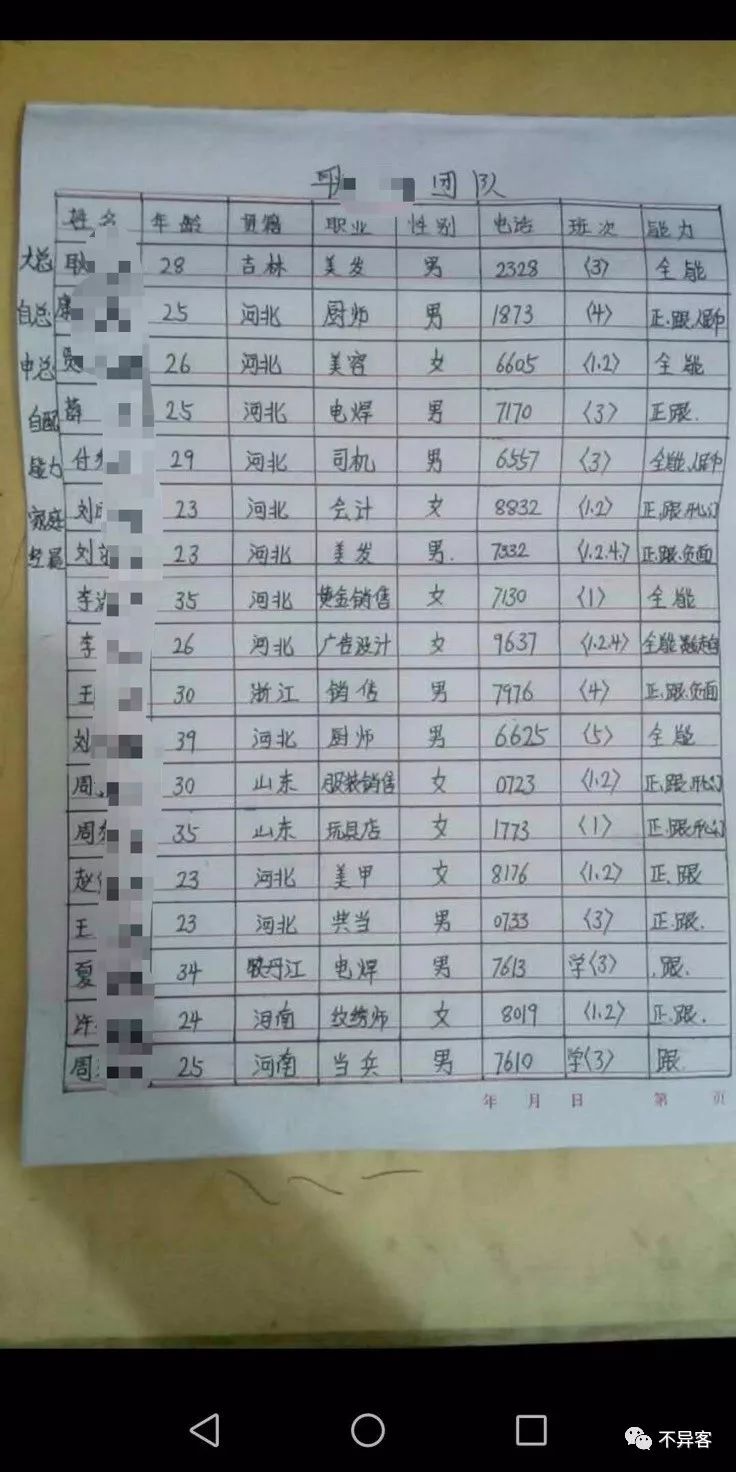 团队
姓名 年龄 籍贯 职业 性别 电话 班次 能力
大总 耿 28 吉林 美发 男 2328 〈3〉 全能
自总 康 25 河北 厨师 男 1873 〈4〉 正.跟.
申总 贾 26 河北 美容 女 6605 〈1.2〉 全能
自配 薛 25 河北 电焊 男 7170 〈3〉 正跟.
能力 付 29 河北 司机 男 6557 〈3〉 全能.
家庭 刘 23 河北 会计 女 8832 〈1.2〉 正.跟.
刘 23 河北 美发 男. 7332 〈1.2.4.〉 正.跟.负面
李 35 河北 黄金销售 女 7130 〈1〉 全能
李 26 河北 广告设计 女 9637 〈1.2.4〉 全能
王 30 浙江 销售 男 7976 〈4〉 正.跟.负面
刘 39 河北 厨师 男 6625 〈5〉 全能
周 30 山东 服装销售 女 0723 〈1.2〉 正.跟.
周 35 山东 玩具店 女 1773 〈1〉 正.跟
赵 23 河北 美甲 女 8176 〈1.2〉 正.跟
王 23 河北 共当 男 0733 〈3〉 正.跟.
夏 34 牡丹江 电焊 男 7613 学〈3〉 .跟.
许 24 河南 纹绣师 女 8019 〈1.2〉 正.跟.
周 25 河南 当兵 男 7610 学〈3〉 跟.
年 月 日 第 页
不异客